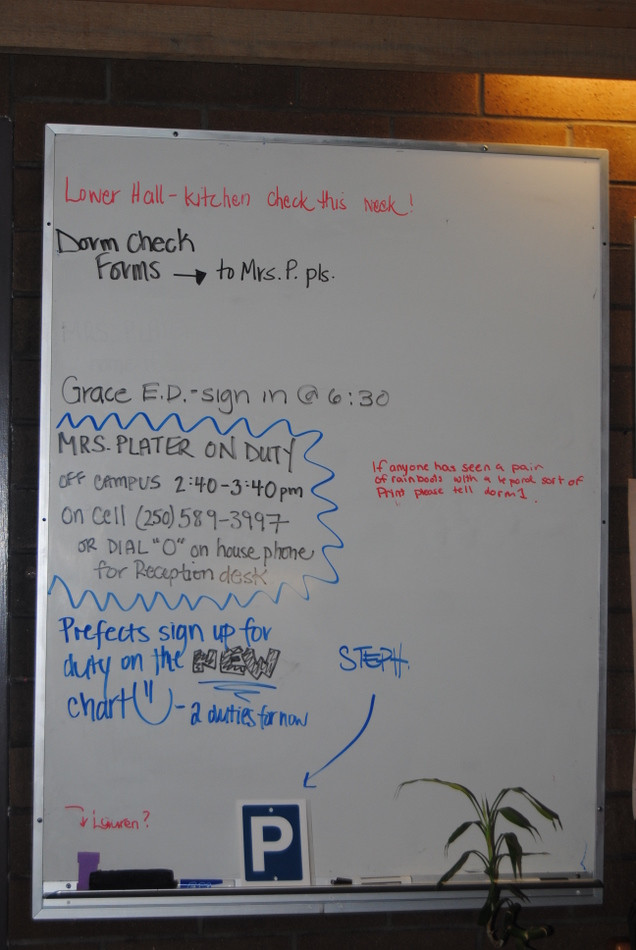 Lower Hall - kitchen check this week!
Dorm check
Forms → to Mrs. P. pls.
Grace E.D. - sign in @ 6:30
MRS. PLATER ON DUTY
OFF CAMPUS 2:40-3:40pm
on cell (250) 589-3997
OR DIAL "O" on house phone
for Reception desk
If anyone has seen a pair
of rainboots with a lepord sort of
Print please tell dorm 1.
Prefects sign up for
duty on the NEW
chart - 2 duties for now
STEPH.
Lauren?
P